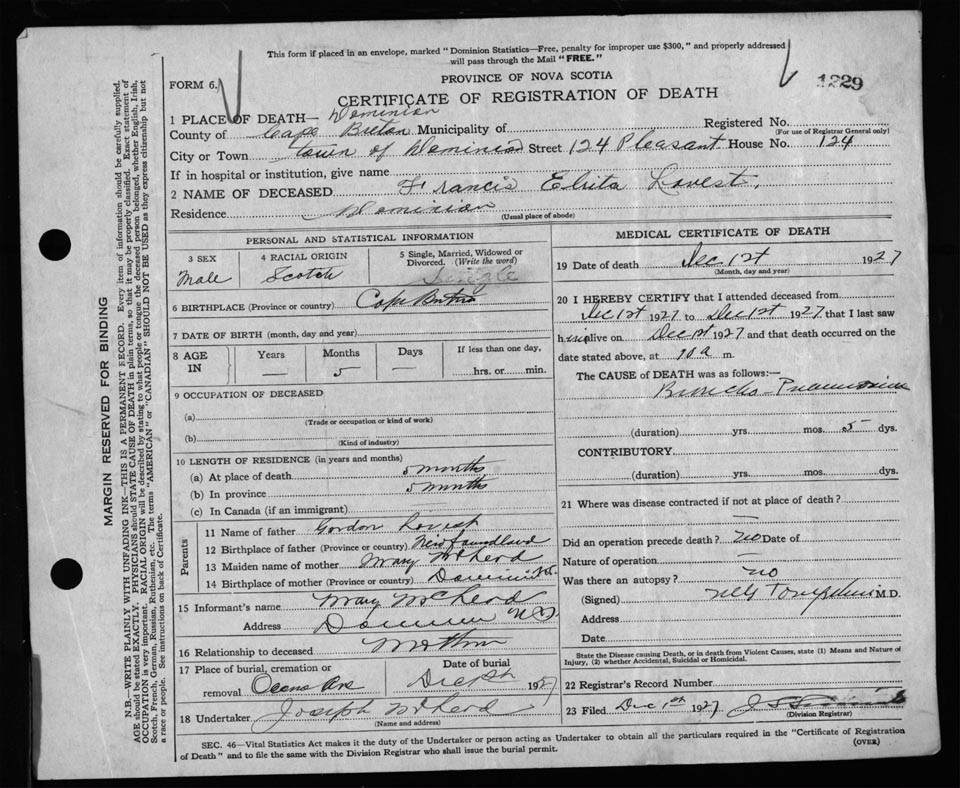 This form if placed in an envelope, marked "Dominion Statistics—Free, penalty for improper use $300," and properly addressed
will pass through the Mail "FREE."
PROVINCE OF NOVA SCOTIA
FORM 6.
1229
CERTIFICATE OF REGISTRATION OF DEATH
1 PLACE OF DEATH— Dominion
Registered No.
County of Cape Breton Municipality of
(For use of Registrar General only)
City or Town town of Dominion Street 124 Pleasant House No. 124
If in hospital or institution, give name
2 NAME OF DECEASED Francis Lovest
Residence Dominion
(Usual place of abode)
PERSONAL AND STATISTICAL INFORMATION
3 SEX 4 RACIAL ORIGIN 5 Single, Married, Widowed or
Divorced. (Write the word)
Male Scotch Single
6 BIRTHPLACE (Province or country) Cape Breton
7 DATE OF BIRTH (month, day and year)
8 AGE IN Years Months Days If less than one day,
— 5 — hrs. or min.
9 OCCUPATION OF DECEASED
(a)
(Trade or occupation or kind of work)
(b)
(Kind of industry)
10 LENGTH OF RESIDENCE (in years and months)
(a) At place of death 5 months
(b) In province 5 months
(c) In Canada (if an immigrant)
Parents
11 Name of father Gordon Lovest
12 Birthplace of father (Province or country) Newfoundland
13 Maiden name of mother Mary McLeod
14 Birthplace of mother (Province or country) Dominion N.S.
15 Informant's name Mary McLeod
Address Dominion N S
16 Relationship to deceased Mother
17 Place of burial, cremation or Date of burial
removal 1927
18 Undertaker Joseph McLeod
(Name and address)
MEDICAL CERTIFICATE OF DEATH
19 Date of death Dec 1st 1927
(Month, day and year)
20 I HEREBY CERTIFY that I attended deceased from
Dec 1st 1927 to Dec 1st 1927 that I last saw
him alive on Dec 1st 1927 and that death occurred on the
date stated above, at 10 a m.
The CAUSE of DEATH was as follows:—
Broncho-Pneumonia
(duration) yrs. mos. 5 dys.
CONTRIBUTORY
(duration) yrs. mos. dys.
21 Where was disease contracted if not at place of death?
—
Did an operation precede death? no Date of
Nature of operation —
Was there an autopsy? no
(Signed) Tompkins M.D.
Address
Date
State the Disease causing Death, or in death from Violent Causes, state (1) Means and Nature of
Injury, (2) whether Accidental, Suicidal or Homicidal.
22 Registrar's Record Number
23 Filed Dec 1st 1927
(Division Registrar)
SEC. 46—Vital Statistics Act makes it the duty of the Undertaker or person acting as Undertaker to obtain all the particulars required in the "Certificate of Registration
of Death" and to file the same with the Division Registrar who shall issue the burial permit.
(OVER)
MARGIN RESERVED FOR BINDING
N.B.—WRITE PLAINLY WITH UNFADING INK—THIS IS A PERMANENT RECORD. Every item of information should be carefully supplied.
AGE should be stated EXACTLY. PHYSICIANS should STATE CAUSE OF DEATH in plain terms, so that it may be properly classified. Exact statement of
OCCUPATION is very important. RACIAL ORIGIN will be described by stating to what people or tongue the deceased person belonged, whether English, Irish,
Scotch, French, German, Russian, Ruthenian, etc. The terms "AMERICAN" or "CANADIAN" SHOULD NOT BE USED as they express citizenship but not
a race or people. See instructions on back of Certificate.